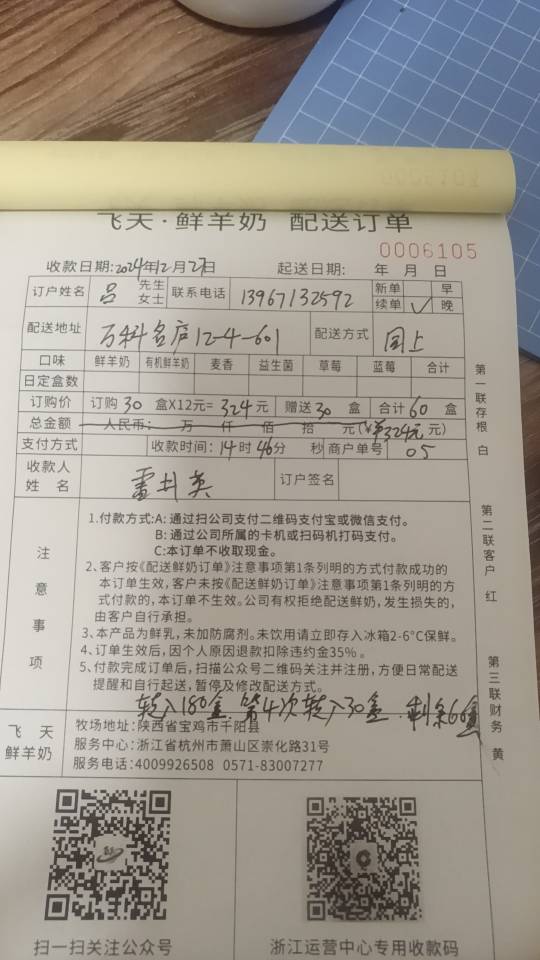 飞天·鲜羊奶 配送订单
0006105
收款日期:2024年12月27日 起送日期: 年 月 日
订户姓名 吕 先生 女士 联系电话 13967132592 新单 早 续单 ✓ 晚
配送地址 万科名庐12-4-601 配送方式 同上
口味 鲜羊奶 有机鲜羊奶 麦香 益生菌 草莓 蓝莓 合计
日定盒数
订购价 订购 30 盒X12元= 324 元 赠送 30 盒 合计 60 盒
总金额 人民币: 万 仟 佰 拾 元(¥324元 元)
支付方式 收款时间: 14 时 46 分 秒 商户单号 05
收款人 姓 名 雷井英 订户签名
注意事项
1.付款方式:A: 通过扫公司支付二维码支付宝或微信支付。
B: 通过公司所属的卡机或扫码机打码支付。
C:本订单不收取现金。
2、客户按《配送鲜奶订单》注意事项第1条列明的方式付款成功的
本订单生效，客户未按《配送鲜奶订单》注意事项第1条列明的方
式付款的，本订单不生效。公司有权拒绝配送鲜奶，发生损失的，
由客户自行承担。
3、本产品为鲜乳，未加防腐剂。未饮用请立即存入冰箱2-6°C保鲜。
4、订单生效后，因个人原因退款扣除违约金35%。
5、付款完成订单后，扫描公众号二维码关注并注册，方便日常配送
提醒和自行起送，暂停及修改配送方式。
转入180盒 第4次转入30盒. 剩余60盒
飞 天 鲜羊奶
牧场地址:陕西省宝鸡市千阳县
服务中心:浙江省杭州市萧山区崇化路31号
服务电话:4009926508 0571-83007277
第一联存根 白
第二联客户 红
第三联财务 黄
扫一扫关注公众号
浙江运营中心专用收款码